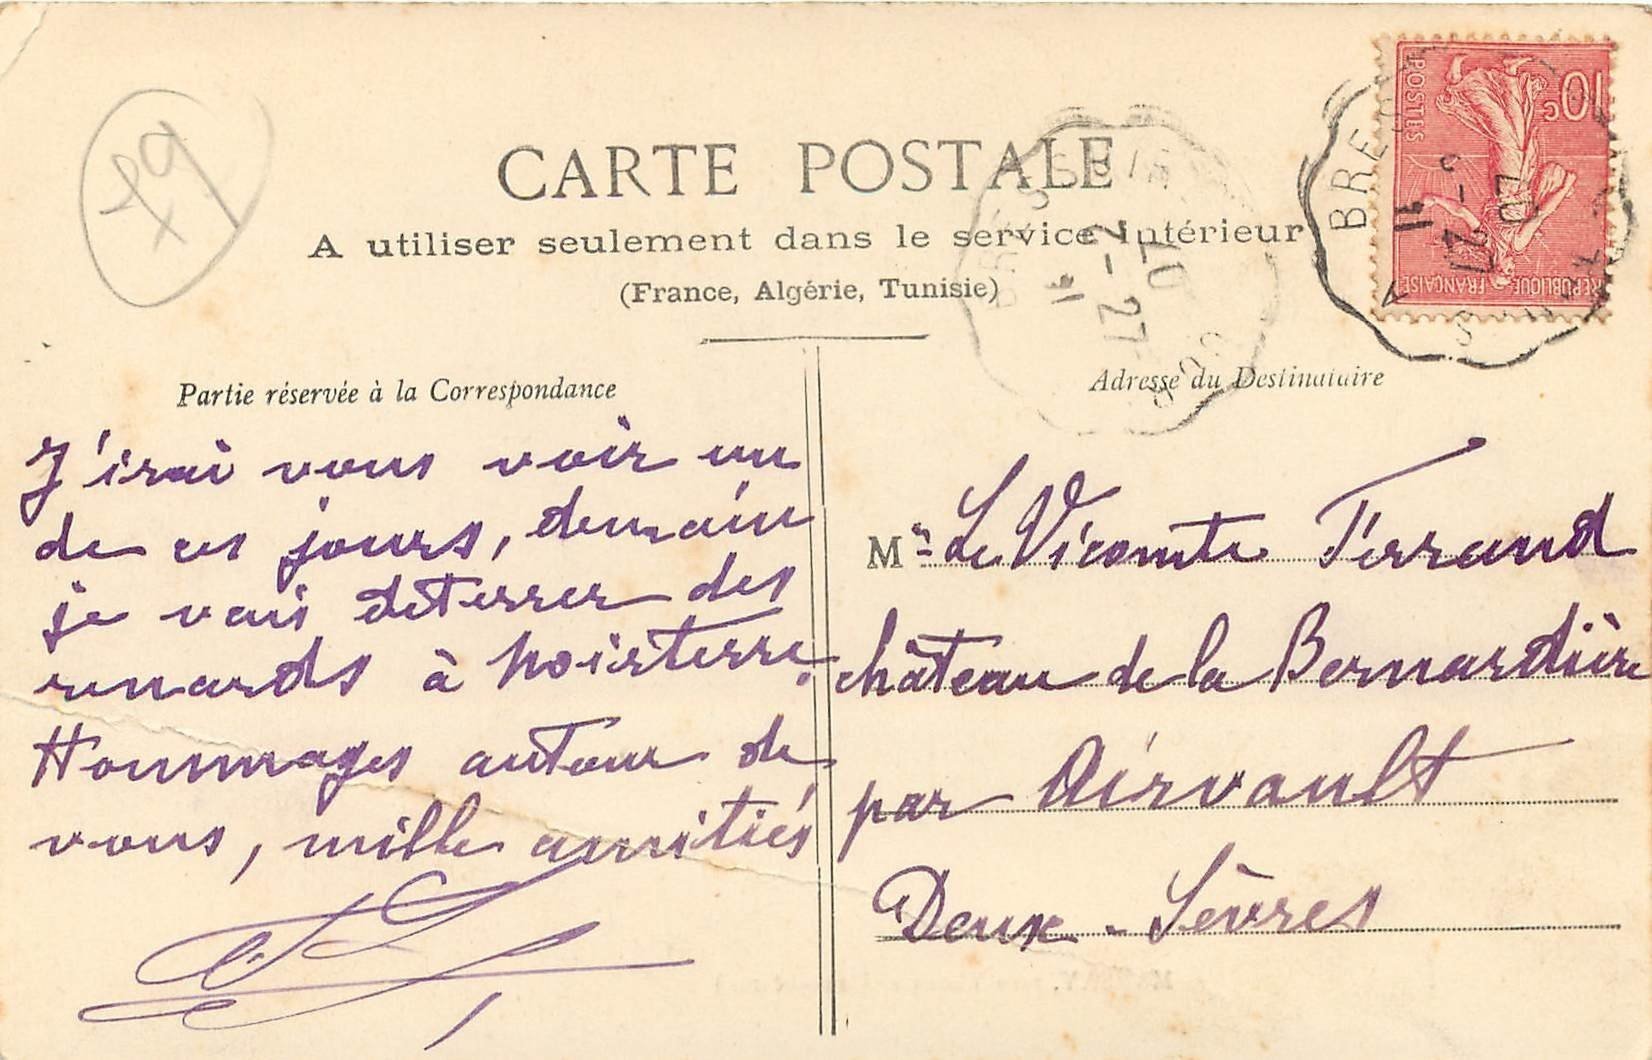 79
CARTE POSTALE
A utiliser seulement dans le service intérieur
(France, Algérie, Tunisie)
10c
POSTES
REPUBLIQUE FRANÇAISE
27-2
07
27-2
07
Partie réservée à la Correspondance
J'irai vous voir un
de ces jours, demain
je vais déterrer des
renards à Noirterre.
Hommages autour de
vous, mille amitiés
Adresse du Destinataire
Mr Le Vicomte Ferrand
château de la Bernardière
par Airvault
Deux-Sèvres